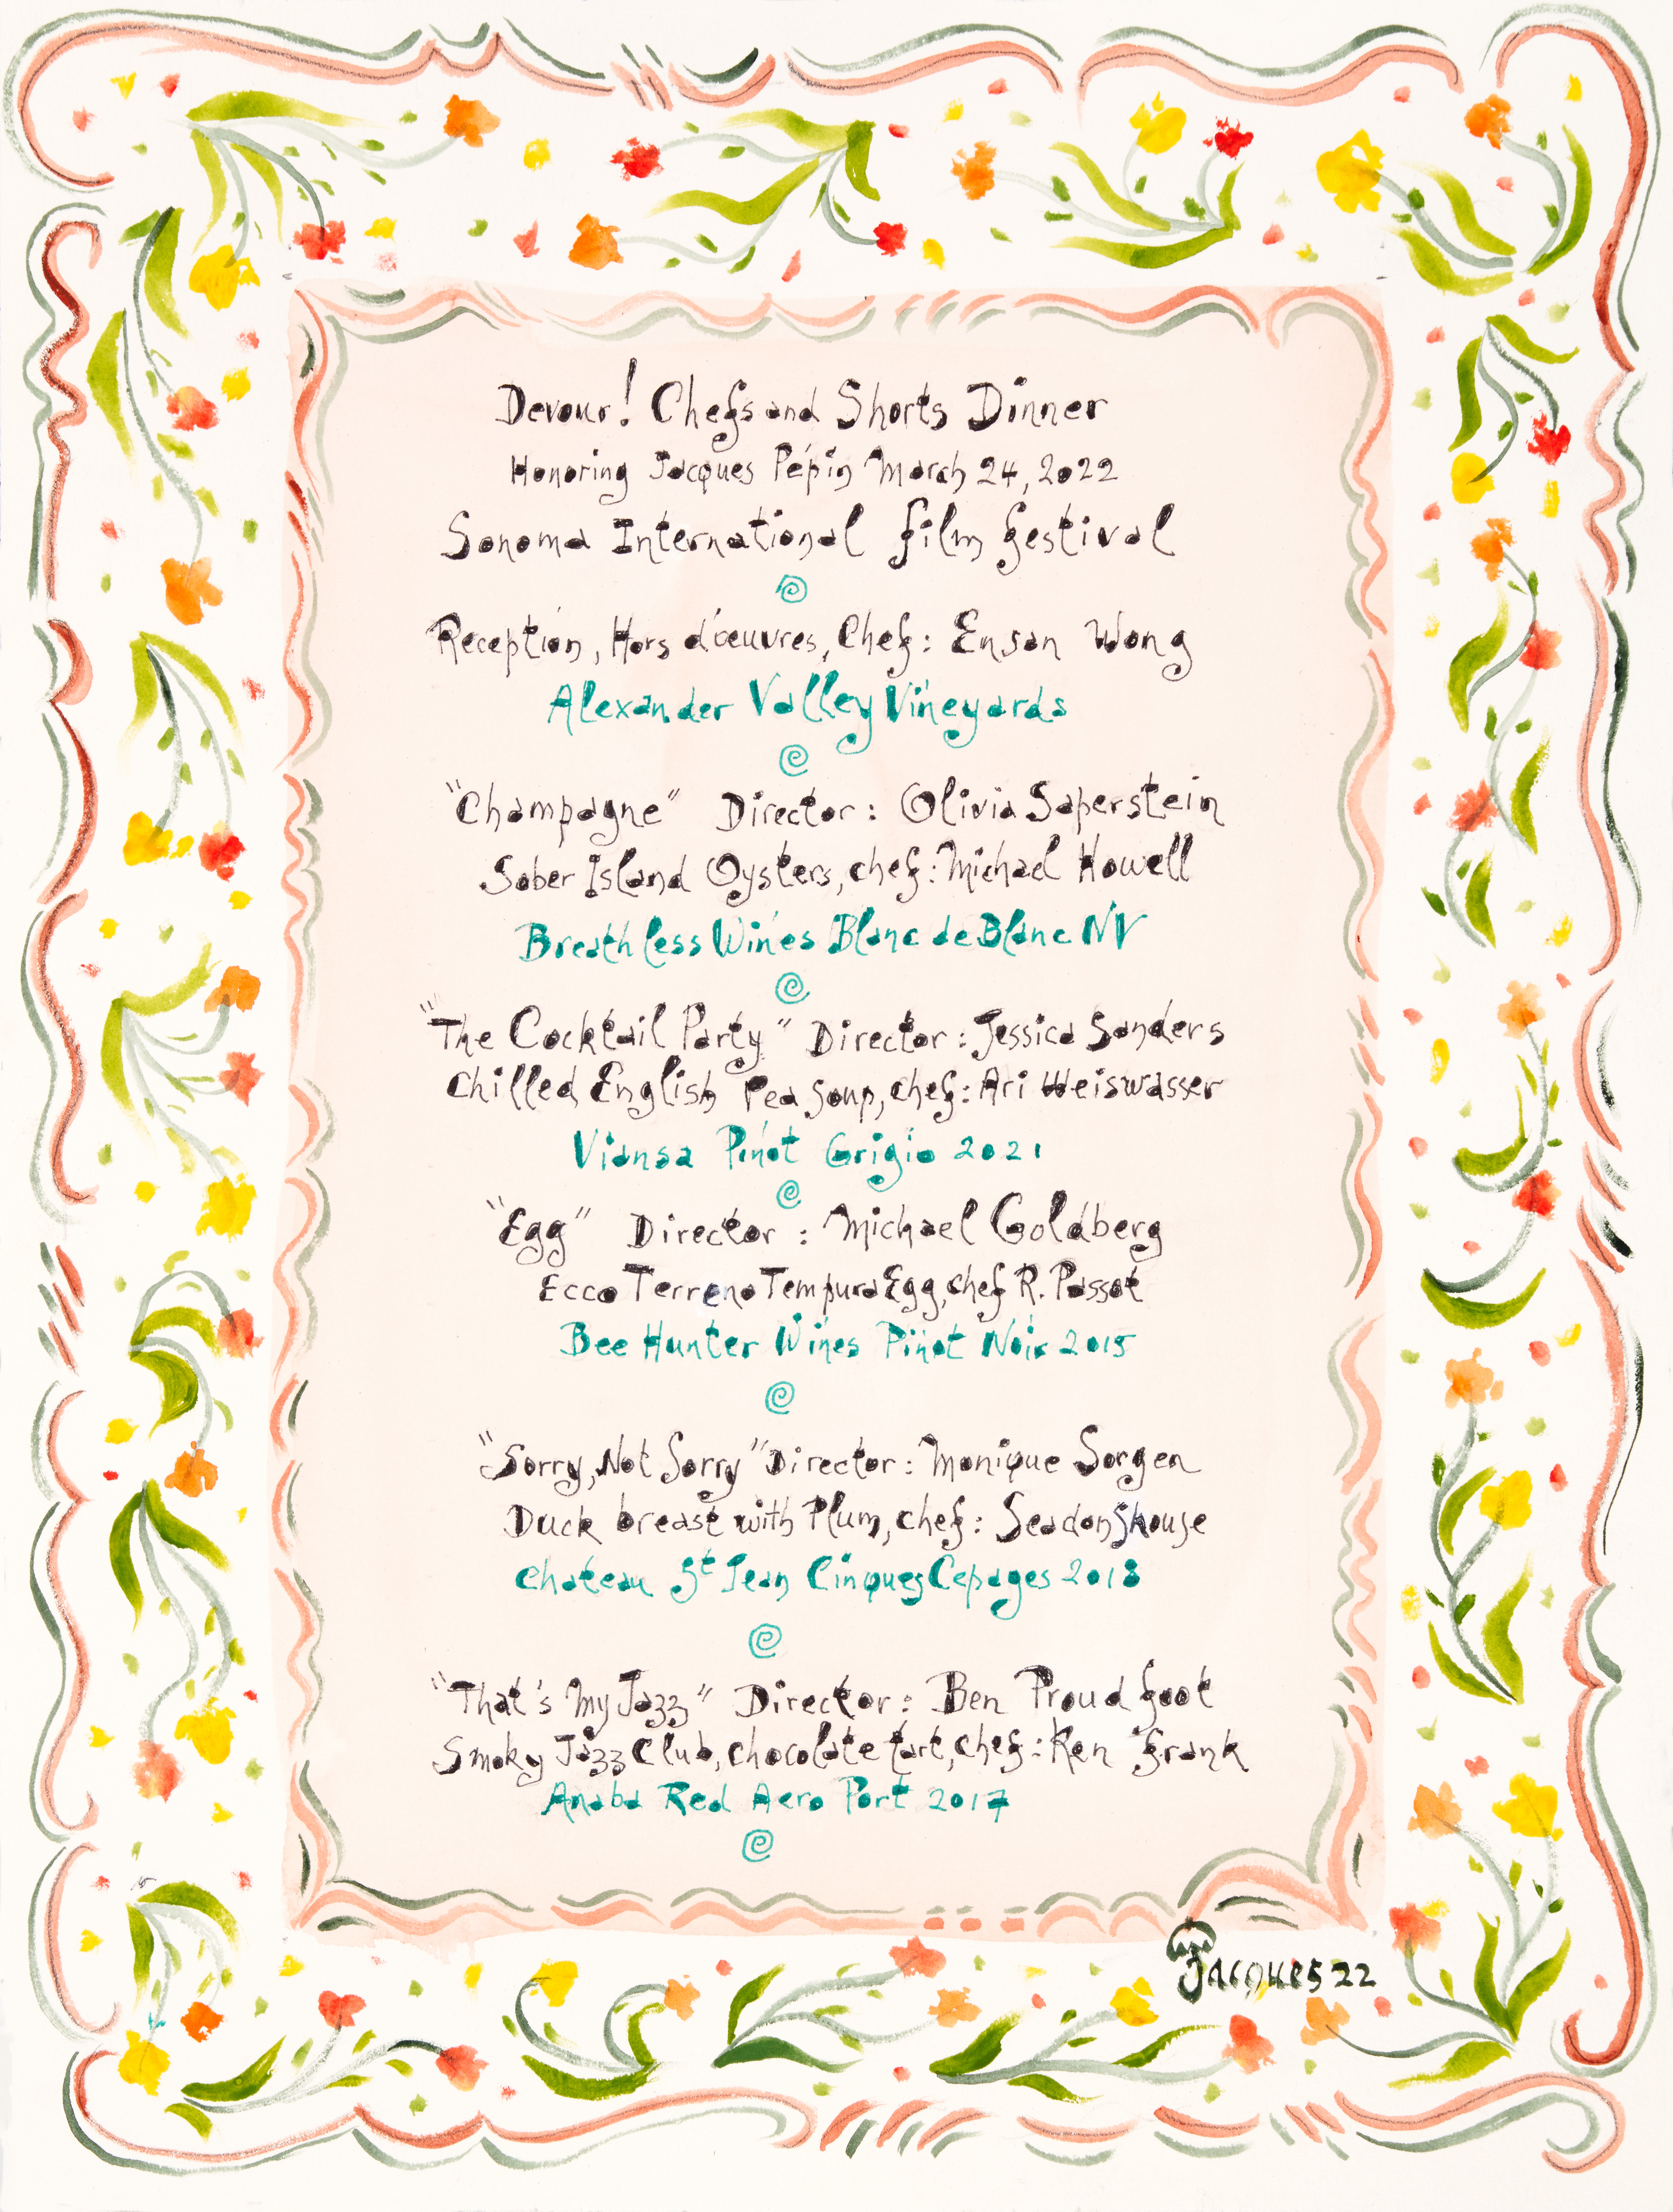 Devour! Chefs and Shorts Dinner
Honoring Jacques Pépin March 24, 2022
Sonoma International film festival
Reception, Hors d'œuvres, Chef: Ensan Wong
Alexander Valley Vineyards
"Champagne" Director: Olivia Saperstein
Sober Island Oysters, chef: Michael Howell
Breathless Wines Blanc de Blanc NV
"The Cocktail Party" Director: Jessica Sanders
Chilled English Pea Soup, chef: Ari Weiswasser
Viansa Pinot Grigio 2021
"Egg" Director: Michael Goldberg
Ecco Terreno Tempura Egg, chef R. Passot
Bee Hunter Wines Pinot Noir 2015
"Sorry, Not Sorry" Director: Monique Sorgen
Duck breast with Plum, chef: Seadon Shouse
Chateau St Jean Cinques Cepages 2018
"That's My Jazz" Director: Ben Proudfoot
Smoky Jazz Club, chocolate tart, chef: Ken Frank
Anaba Red Aero Port 2017
Jacques 22